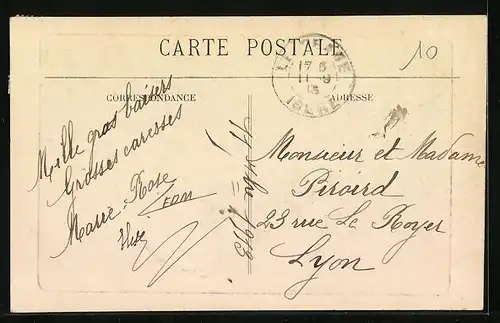 CARTE POSTALE
10
17 5
11 - 9
13
ISERE
CORRESPONDANCE
ADRESSE
Mille gros baisers
Grosses caresses
Marie-Rose
11 7bre 1913
Monsieur et Madame
Piroird
23 rue Le Royer
Lyon